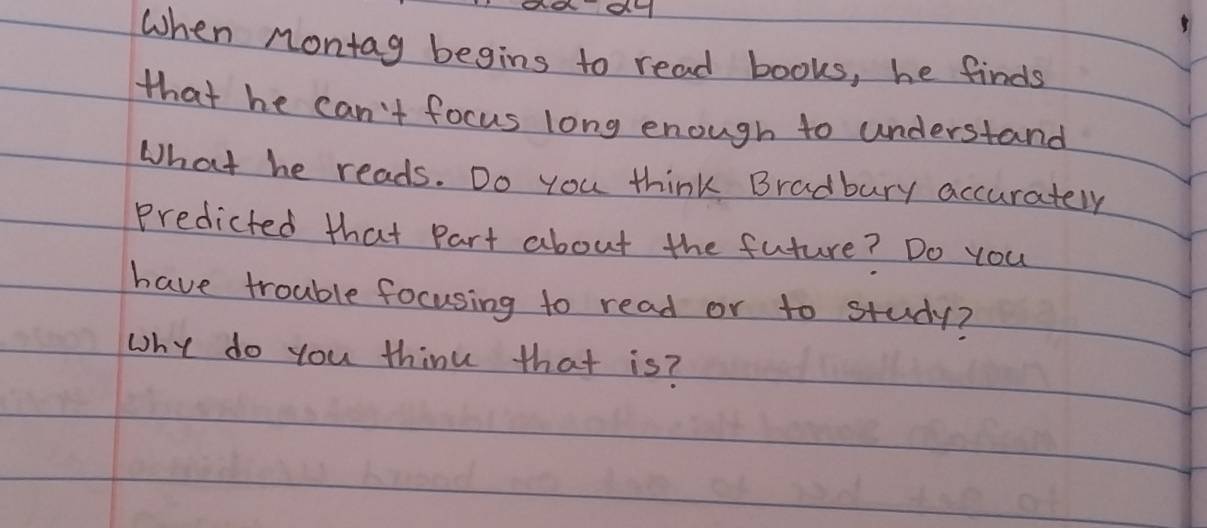 22-24
When Montag begins to read books, he finds
that he can't focus long enough to understand
What he reads. Do you think Bradbury accurately
Predicted that Part about the future? Do you
have trouble focusing to read or to study?
Why do you think that is?